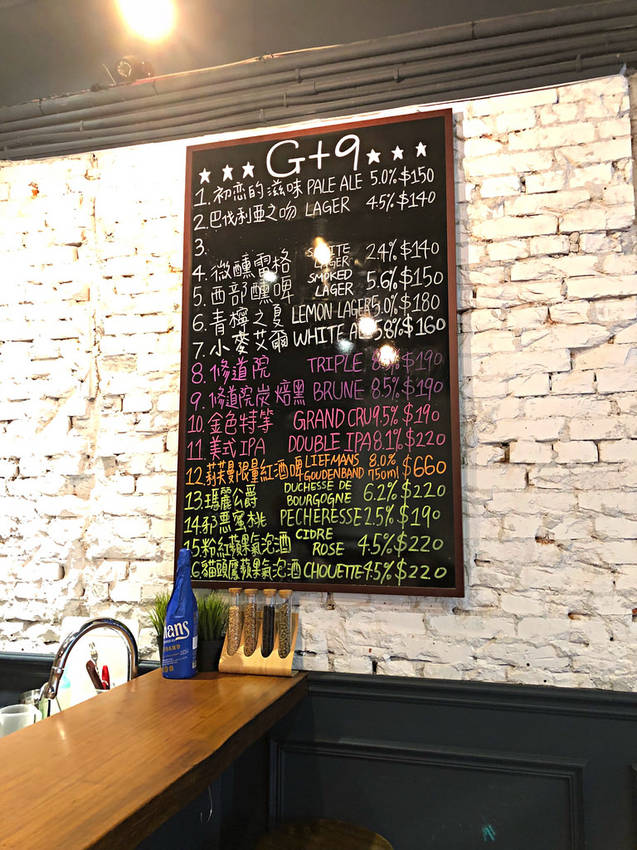 G+9
1. 初恋的滋味 PALE ALE 5.0% $150
2. 巴伐利亞之吻 LAGER 4.5% $140
3.
4. 微醺電格 LAGER 2.4% $140
5. 西部醺啤 SMOKED LAGER 5.6% $150
6. 青檸之夏 LEMON LAGER 5.0% $180
7. 小麥艾爾 WHITE 5.8% $160
8. 修道院 TRIPLE $190
9. 修道院炭焙黑 BRUNE 8.5% $190
10. 金色特等 GRAND CRU 9.5% $190
11. 美式IPA DOUBLE IPA 8.1% $220
12. 莉芙曼限量紅酒啤 LIEFMANS GOUDENBAND 8.0% 750ml $660
13. 瑪麗公爵 DUCHESSE DE BOURGOGNE 6.2% $220
14. 邪惡蜜桃 PECHERESSE 2.5% $190
15. 粉紅蘋果氣泡酒 CIDRE ROSE 4.5% $220
16. 貓頭鷹蘋果氣泡酒 CHOUETTE 4.5% $220